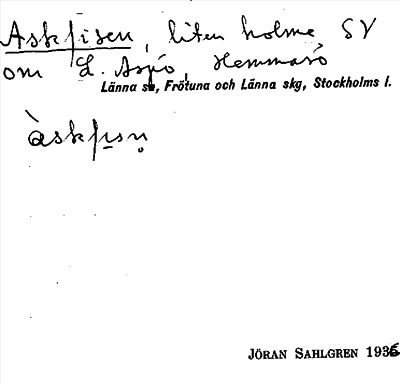 Askfisen, liten holme SV
om L. Aspö, Hemmarö
Länna sn, Frötuna och Länna skg, Stockholms l.
àskfisn̥
JÖRAN SAHLGREN 1936